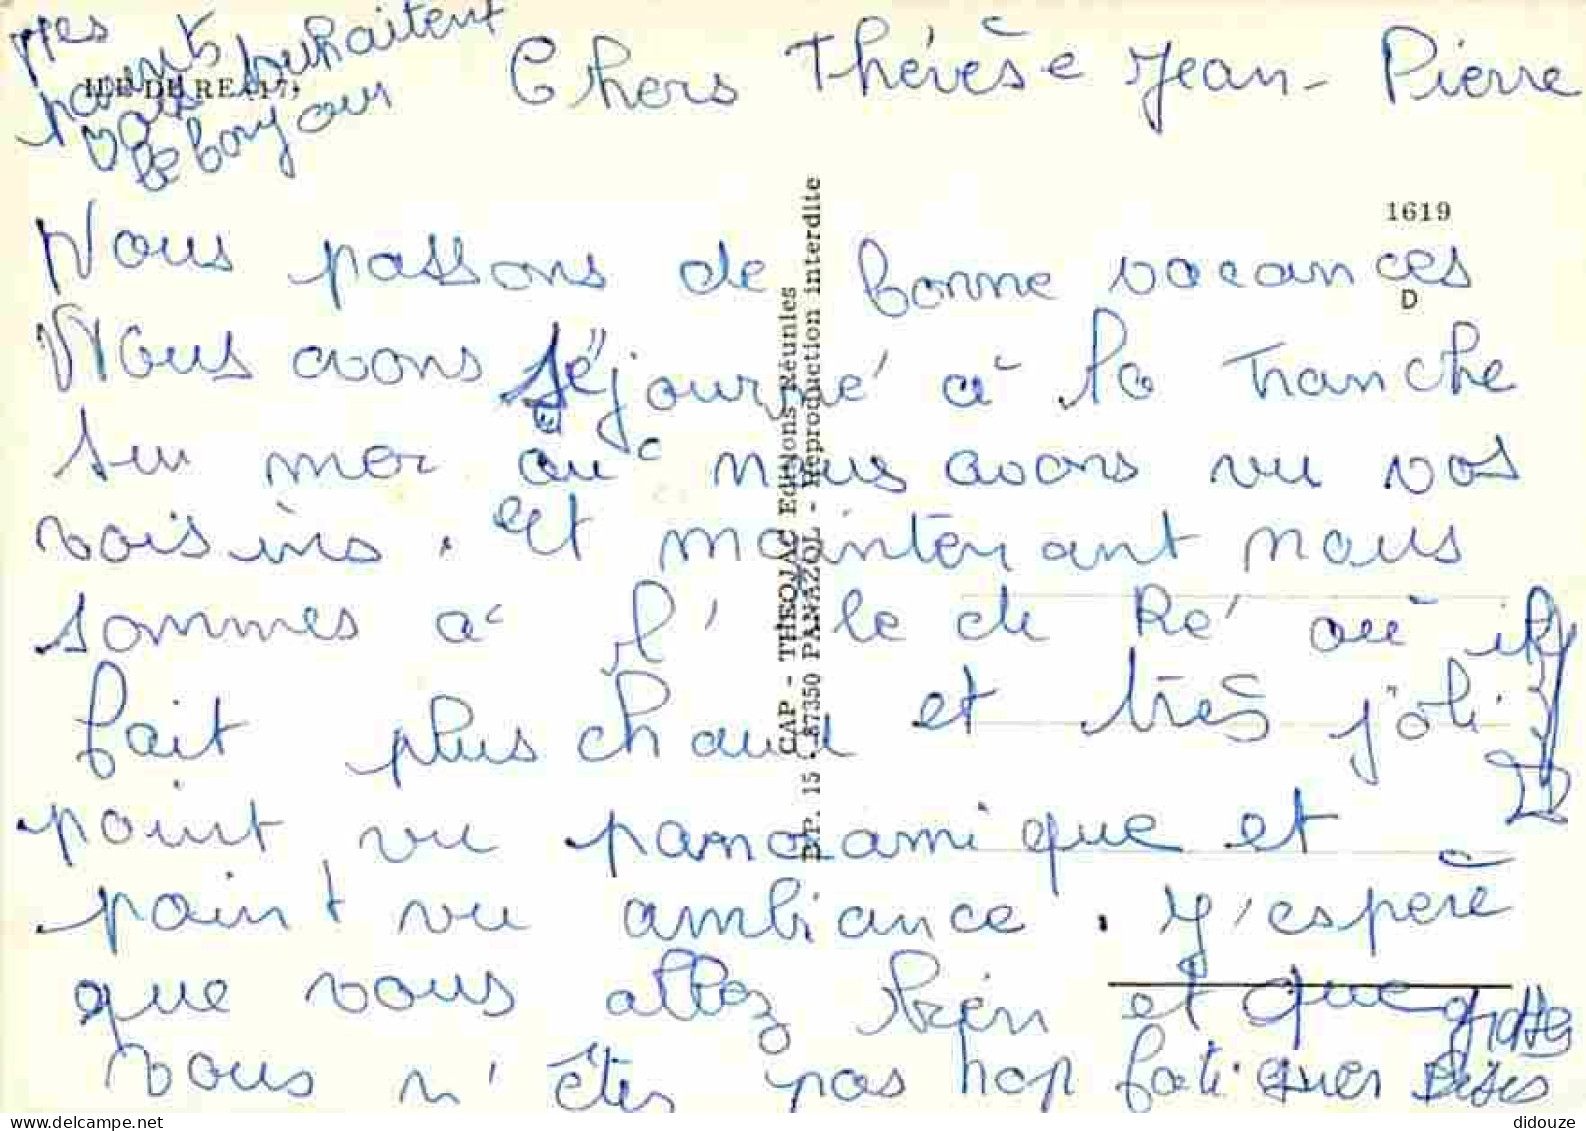 Mes
parents
vous souhaitent
le bonjour
ILE DE RE (17)
Chers Thérèse Jean-Pierre
1619
D
Nous passons de bonne vacances
Nous avons séjourné à la Tranche
sur mer où nous avons vu vos
voisins. Et maintenant nous
sommes à l'île de Ré où il
fait plus chaud et très joli
point vu panoramique et
point vu ambiance. J'espère
que vous allez bien et que
vous n'êtes pas trop fatiguer Bises
CAP - THEOJAC Editions Réunies
B.P. 15 - 87350 PANAZOL - Reproduction interdite
didouze